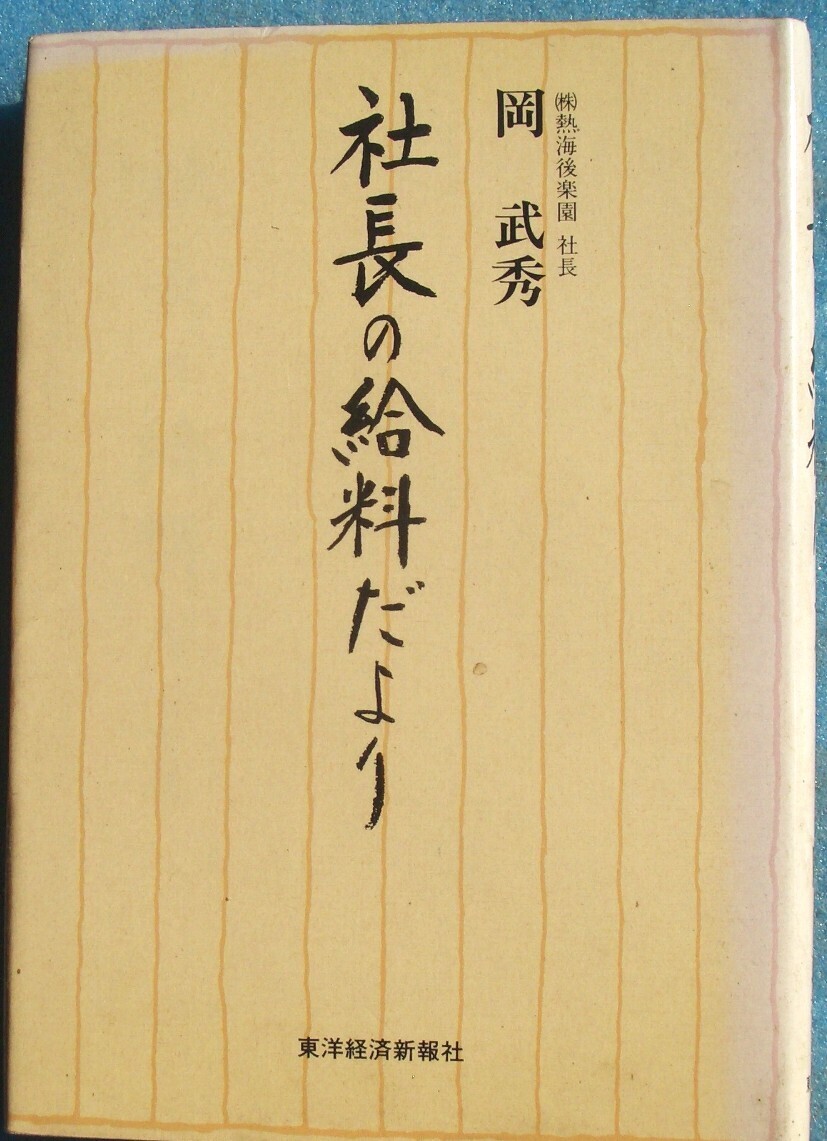 ㈱熱海後楽園 社長
岡 武秀
社長の給料だより
東洋経済新報社